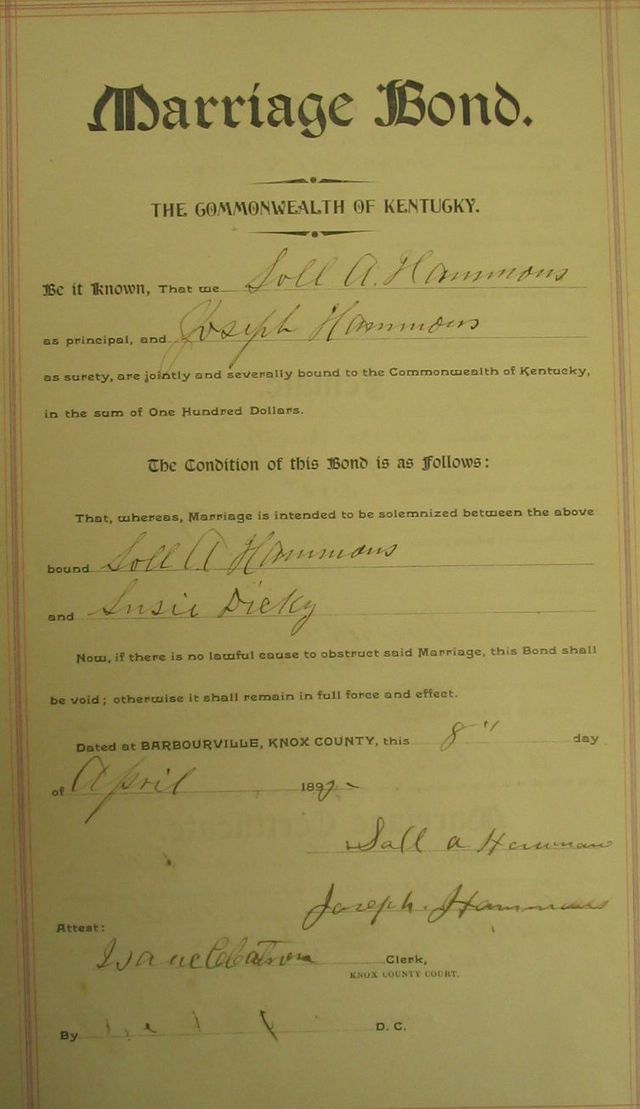 Marriage Bond.
THE COMMONWEALTH OF KENTUCKY.
Be it Known, That we Soll A. Hammons
as principal, and Joseph Hammons
as surety, are jointly and severally bound to the Commonwealth of Kentucky,
in the sum of One Hundred Dollars.
The Condition of this Bond is as Follows:
That, whereas, Marriage is intended to be solemnized between the above
bound Soll A Hammons
and Susie Dicky
Now, if there is no lawful cause to obstruct said Marriage, this Bond shall
be void; otherwise it shall remain in full force and effect.
Dated at BARBOURVILLE, KNOX COUNTY, this 8" day
of April 189
Soll a Hammons
Joseph Hammons
Attest:
Isaac Catron Clerk,
KNOX COUNTY COURT.
By D. C.